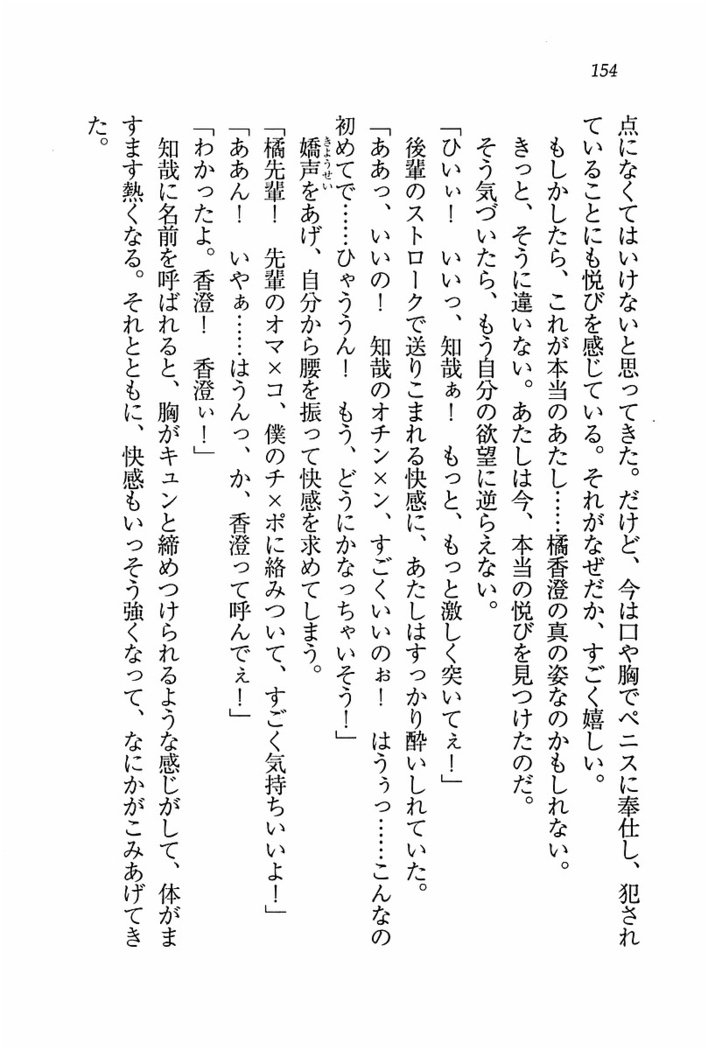 154
点になくてはいけないと思ってきた。だけど、今は口や胸でペニスに奉仕し、犯され
ていることにも悦びを感じている。それがなぜだか、すごく嬉しい。
もしかしたら、これが本当のあたし……橘香澄の真の姿なのかもしれない。
きっと、そうに違いない。あたしは今、本当の悦びを見つけたのだ。
そう気づいたら、もう自分の欲望に逆らえない。
「ひいぃ！　いいっ、知哉ぁ！　もっと、もっと激しく突いてぇ！」
後輩のストロークで送りこまれる快感に、あたしはすっかり酔いしれていた。
「ああっ、いいの！　知哉のオチン×ン、すごくいいのぉ！　はうぅっ……こんなの
初めてで……ひゃううん！　もう、どうにかなっちゃいそう！」
嬌声をあげ、自分から腰を振って快感を求めてしまう。
「橘先輩！　先輩のオマ×コ、僕のチ×ポに絡みついて、すごく気持ちいいよ！」
「ああん！　いやぁ……はうんっ、か、香澄って呼んでぇ！」
「わかったよ。香澄！　香澄ぃ！」
知哉に名前を呼ばれると、胸がキュンと締めつけられるような感じがして、体がま
すます熱くなる。それとともに、快感もいっそう強くなって、なにかがこみあげてき
た。